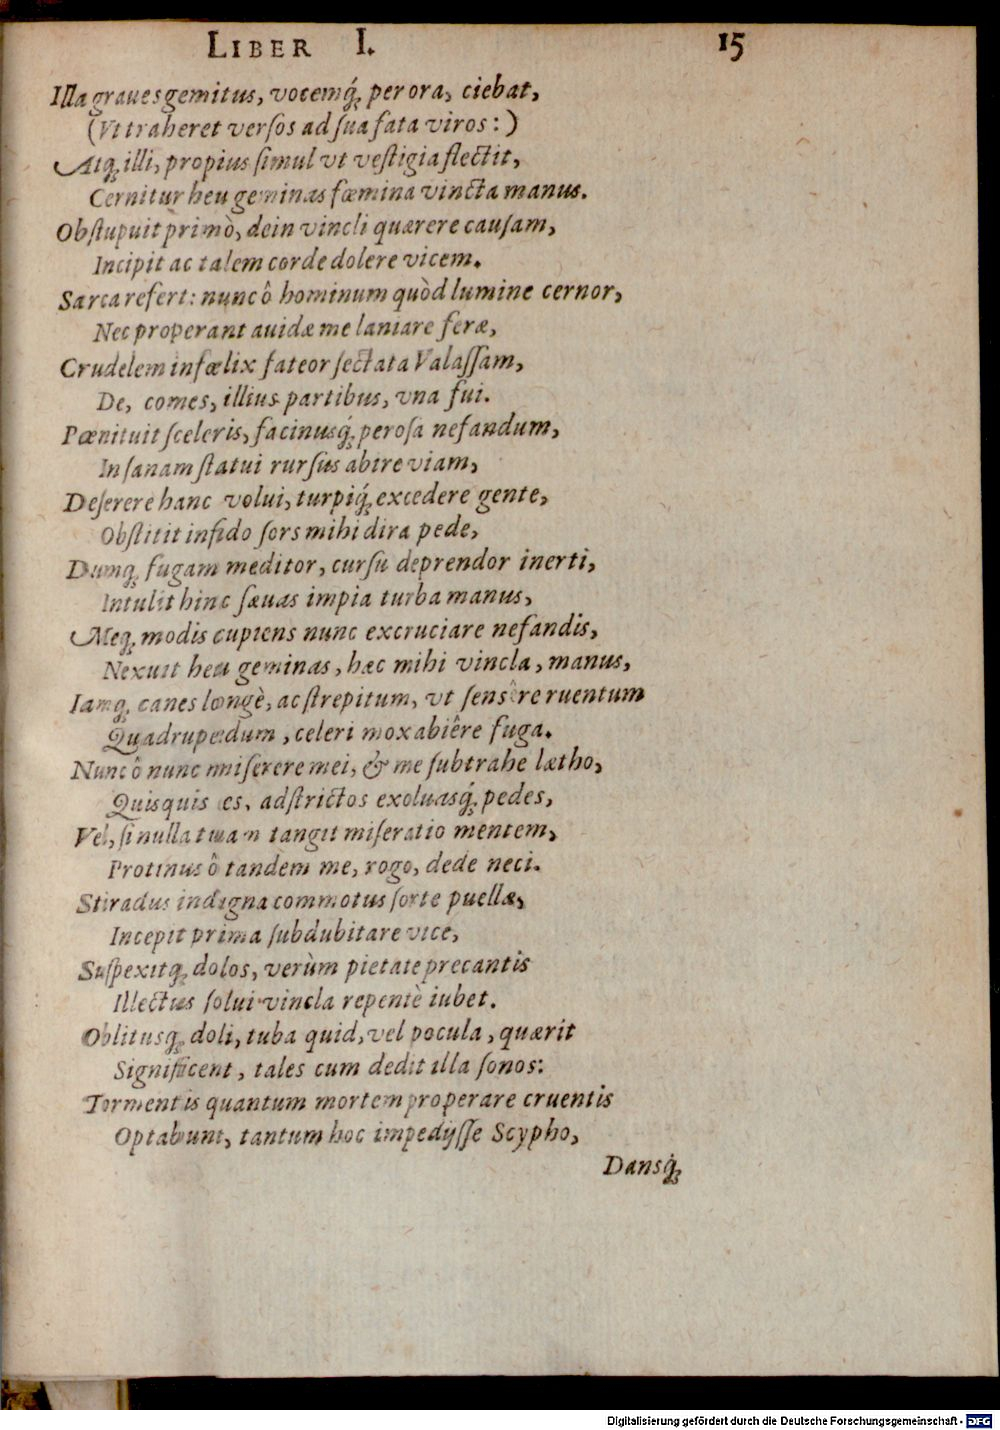 LIBER I. 15
Illa graues gemitus, vocemq́; per ora, ciebat,
(Vt traheret versos ad sua fata viros:)
Atq; illi, propius simul vt vestigia flectit,
Cernitur heu geminas fœmina vincta manus.
Obstupuit primò, dein vincli quærere causam,
Incipit ac talem corde dolere vicem.
Sarca refert: nunc ô hominum quòd lumine cernor,
Nec properant auidæ me laniare feræ,
Crudelem infœlix fateor sectata Valassam,
De, comes, illius partibus, vna fui.
Pœnituit sceleris, facinusq́; perosa nefandum,
Insanam statui rursus abire viam,
Deserere hanc volui, turpiq́; excedere gente,
Obstitit infido sors mihi dira pede,
Dumq; fugam meditor, cursu deprendor inerti,
Intulit hinc sæuas impia turba manus,
Meq; modis cupiens nunc excruciare nefandis,
Nexuit heu geminas, hæc mihi vincla, manus,
Iamq; canes longè, ac strepitum, vt sensêre ruentum
Quadrupedum, celeri mox abiêre fuga.
Nunc ô nunc miserere mei, & me subtrahe lætho,
Quisquis es, adstrictos exoluasq́; pedes,
Vel, si nulla tuam tangit miseratio mentem,
Protinus ô tandem me, rogo, dede neci.
Stiradus indigna commotus sorte puellæ,
Incepit prima subdubitare vice,
Suspexitq; dolos, verùm pietate precantis
Illectus solui vincla repentè iubet.
Oblitusq; doli, tuba quid, vel pocula, quærit
Significent, tales cum dedit illa sonos:
Tormentis quantum mortem properare cruentis
Optabunt, tantum hoc impedijsse Scypho,
Dansq́;
Digitalisierung gefördert durch die Deutsche Forschungsgemeinschaft - DFG